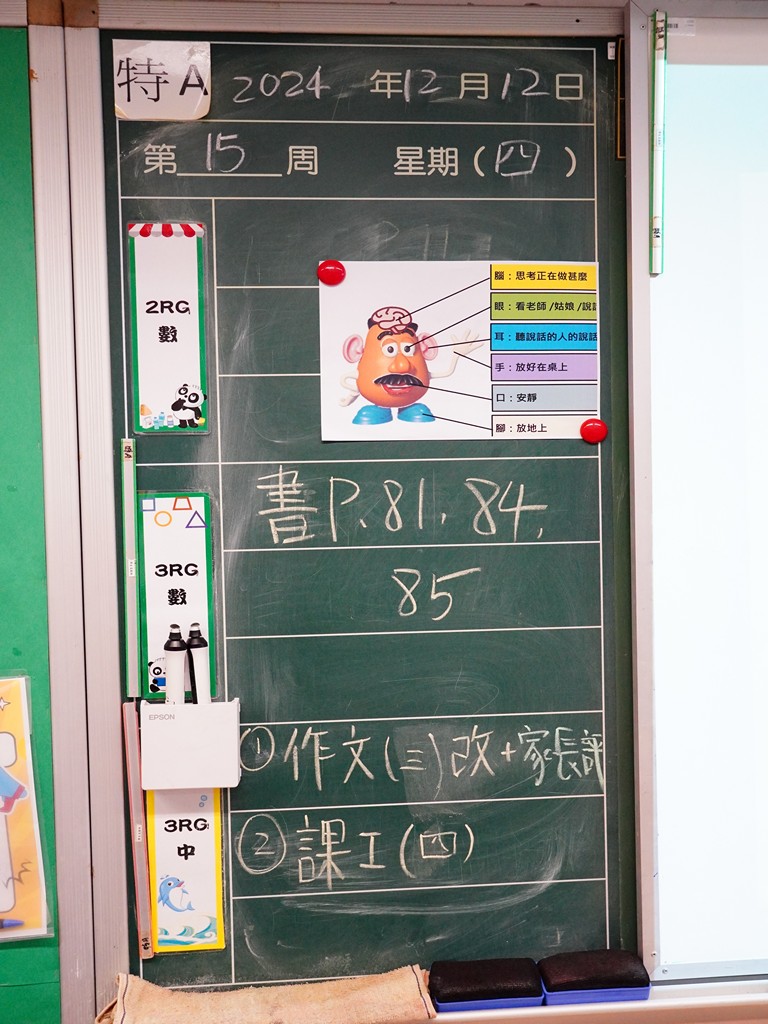 特A 2024 年12月12日
第 15 周 星期(四)
2RG
數
腦：思考正在做甚麼
眼：看老師/姑娘/說話
耳：聽說話的人的說話
手：放好在桌上
口：安靜
腳：放地上
3RG
數
書P.81, 84,
85
EPSON
3RG
中
①作文(三)改+家長評
②課工(四)